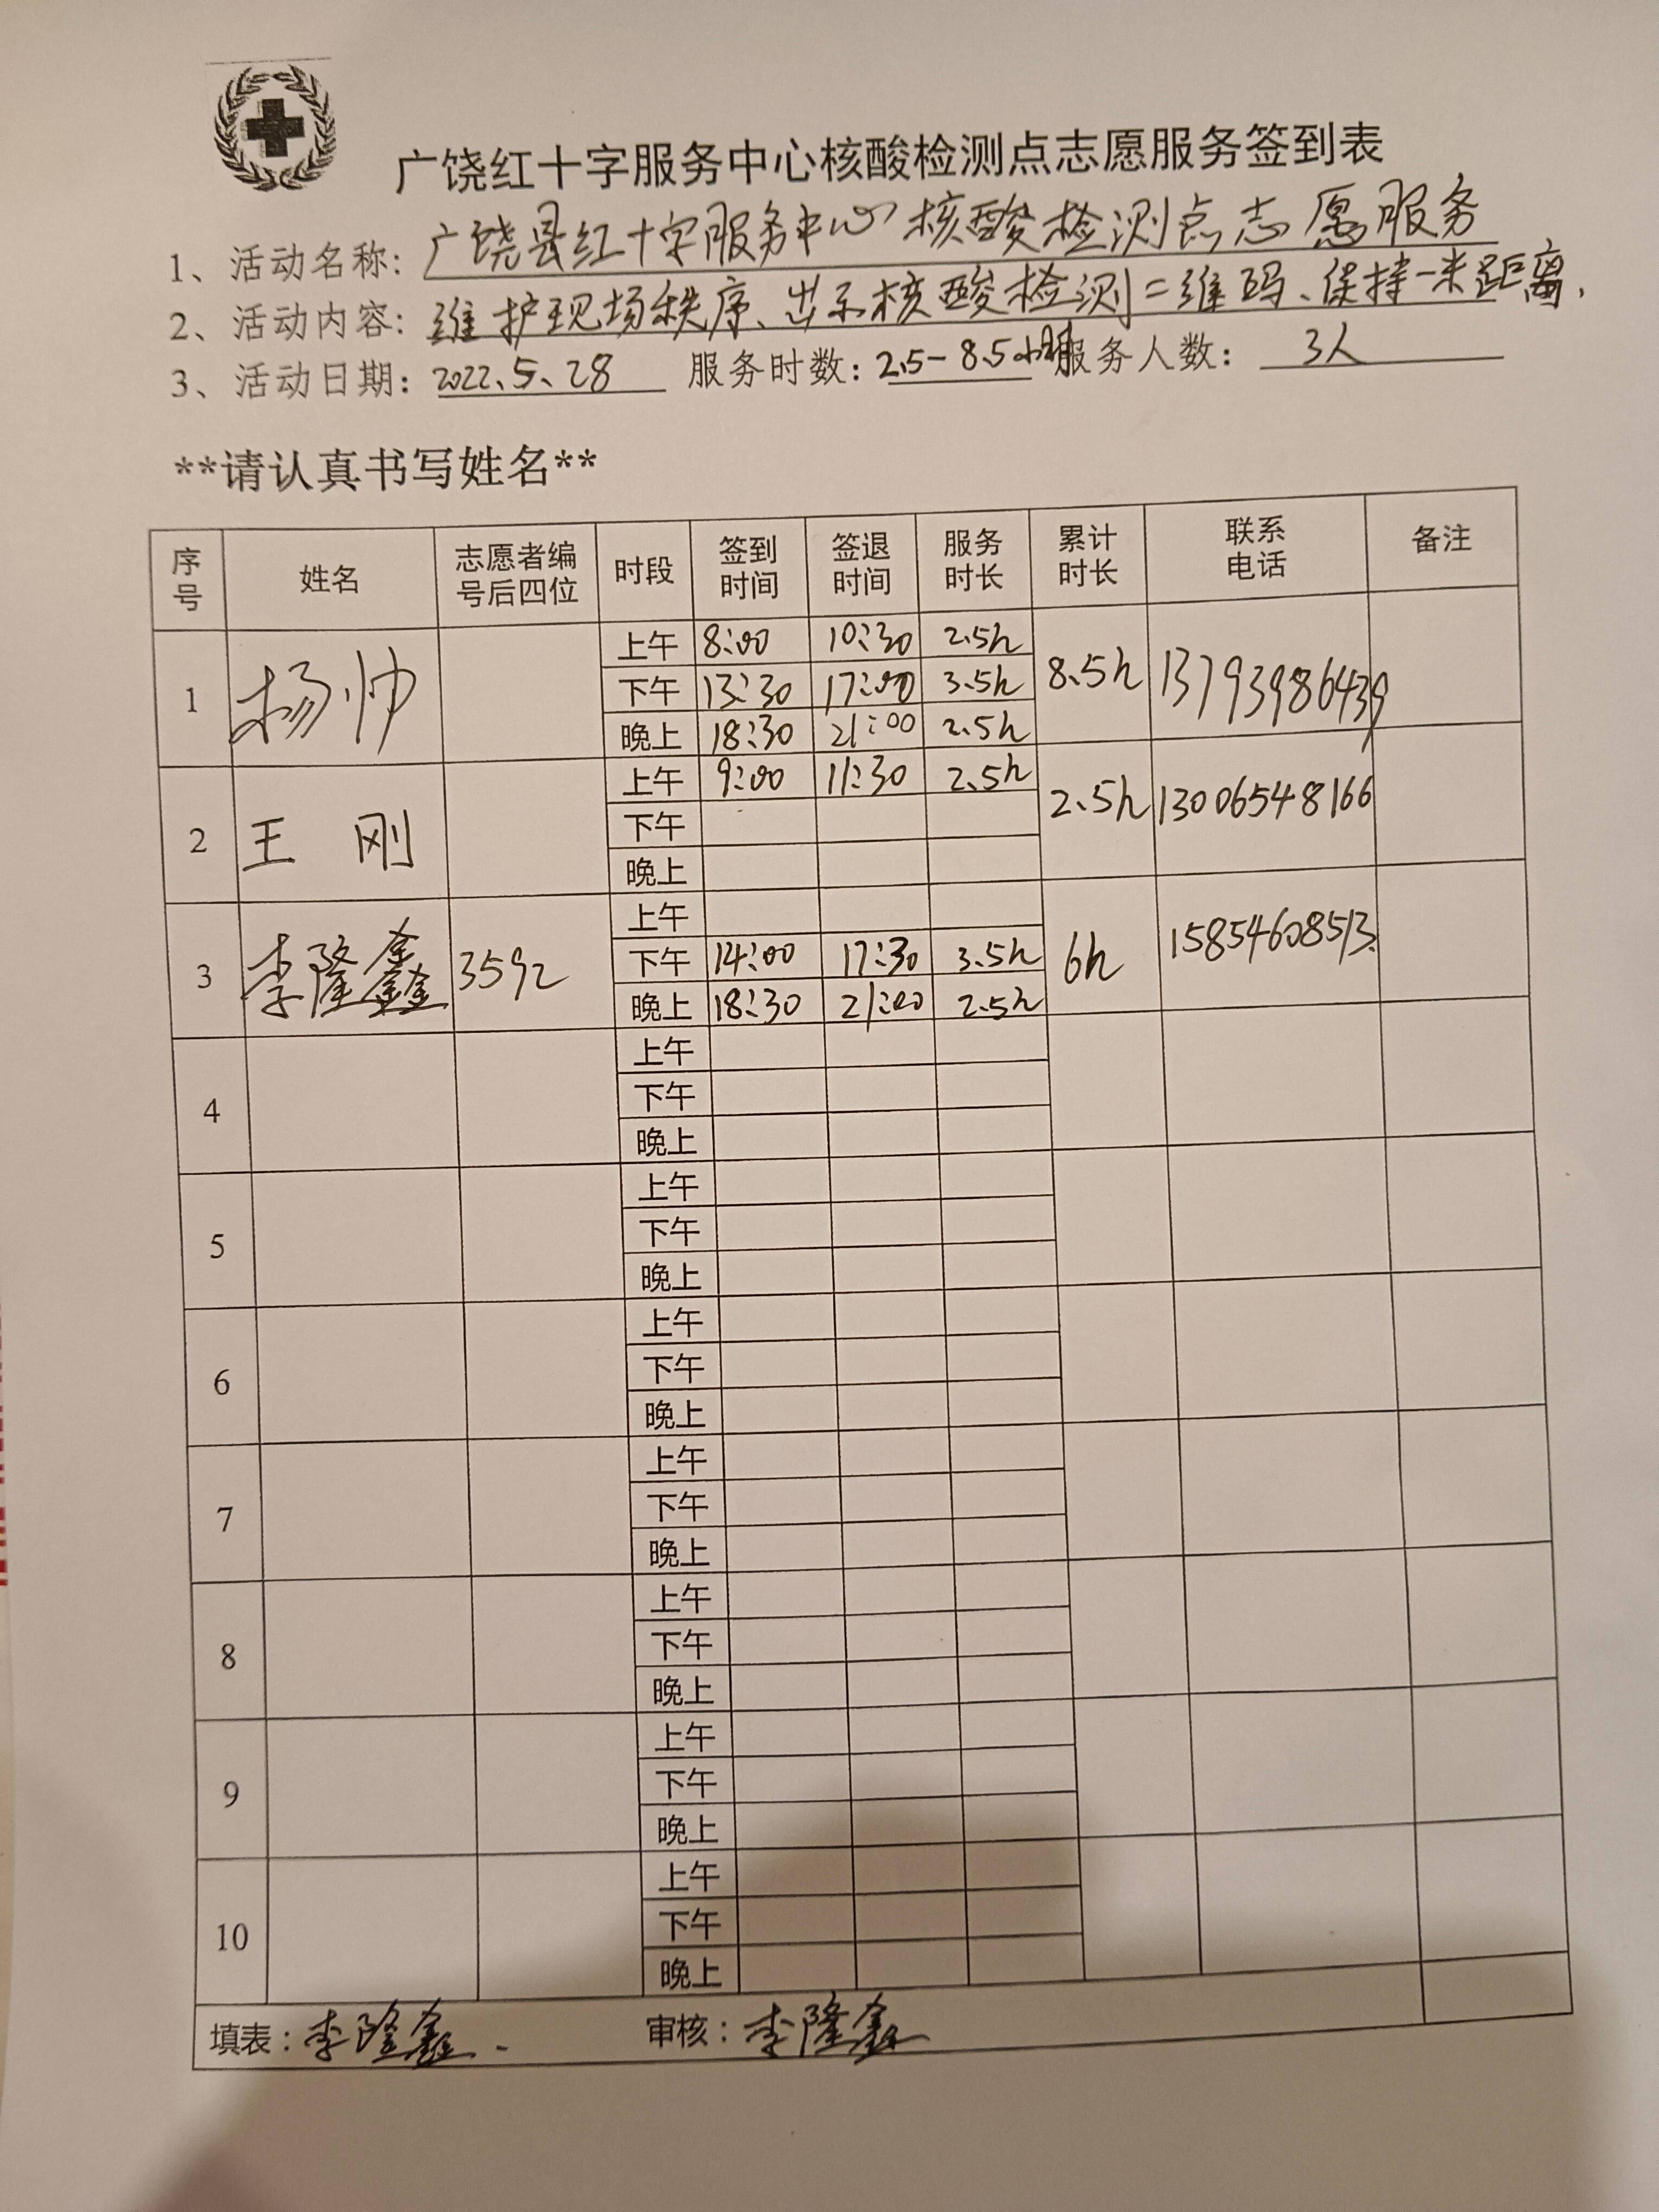 广饶红十字服务中心核酸检测点志愿服务签到表
1、活动名称：广饶县红十字服务中心核酸检测点志愿服务
2、活动内容：维护现场秩序、出示核酸检测二维码、保持一米距离.
3、活动日期：2022.5.28 服务时数：2.5-8.5小时 服务人数：3人
**请认真书写姓名**
序号 姓名 志愿者编号后四位 时段 签到时间 签退时间 服务时长 累计时长 联系电话 备注
1 杨帅 上午 8:00 10:30 2.5h 8.5h 13793986439
下午 13:30 17:00 3.5h
晚上 18:30 21:00 2.5h
2 王刚 上午 9:00 11:30 2.5h 2.5h 13006548166
下午
晚上
3 李隆鑫 3592 上午 6h 15854608513
下午 14:00 17:30 3.5h
晚上 18:30 21:00 2.5h
4 上午
下午
晚上
5 上午
下午
晚上
6 上午
下午
晚上
7 上午
下午
晚上
8 上午
下午
晚上
9 上午
下午
晚上
10 上午
下午
晚上
填表：李隆鑫. 审核：李隆鑫